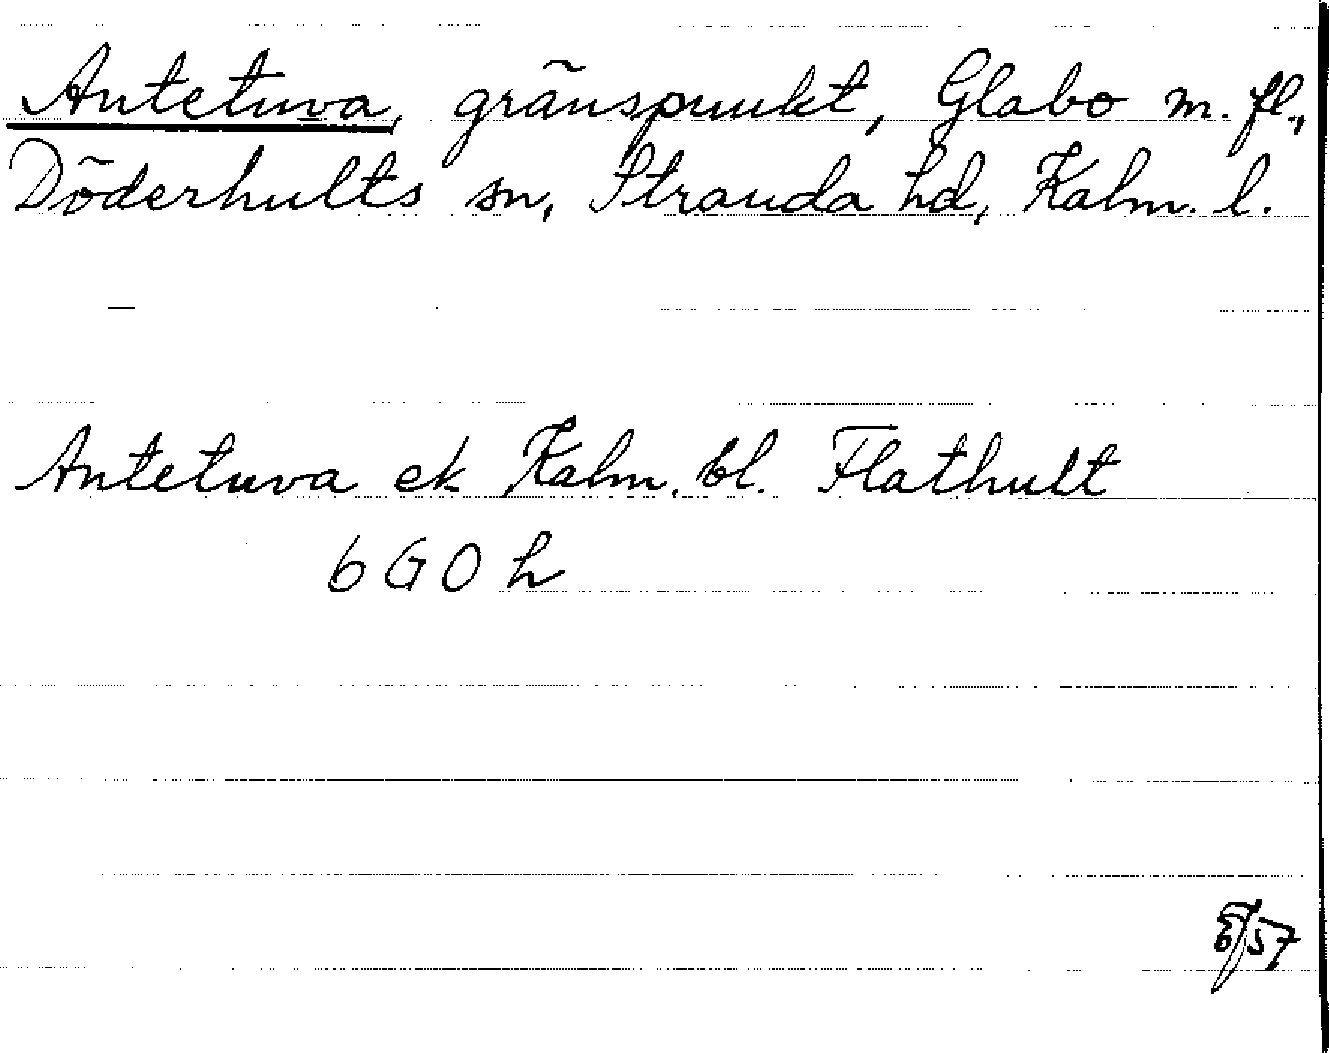 Antetuva, gränspunkt, Glabo m. fl.,
Döderhults sn, Stranda hd, Kalm. l.
—
Antetuva ek Kalm. bl. Flathult
6 G 0 h